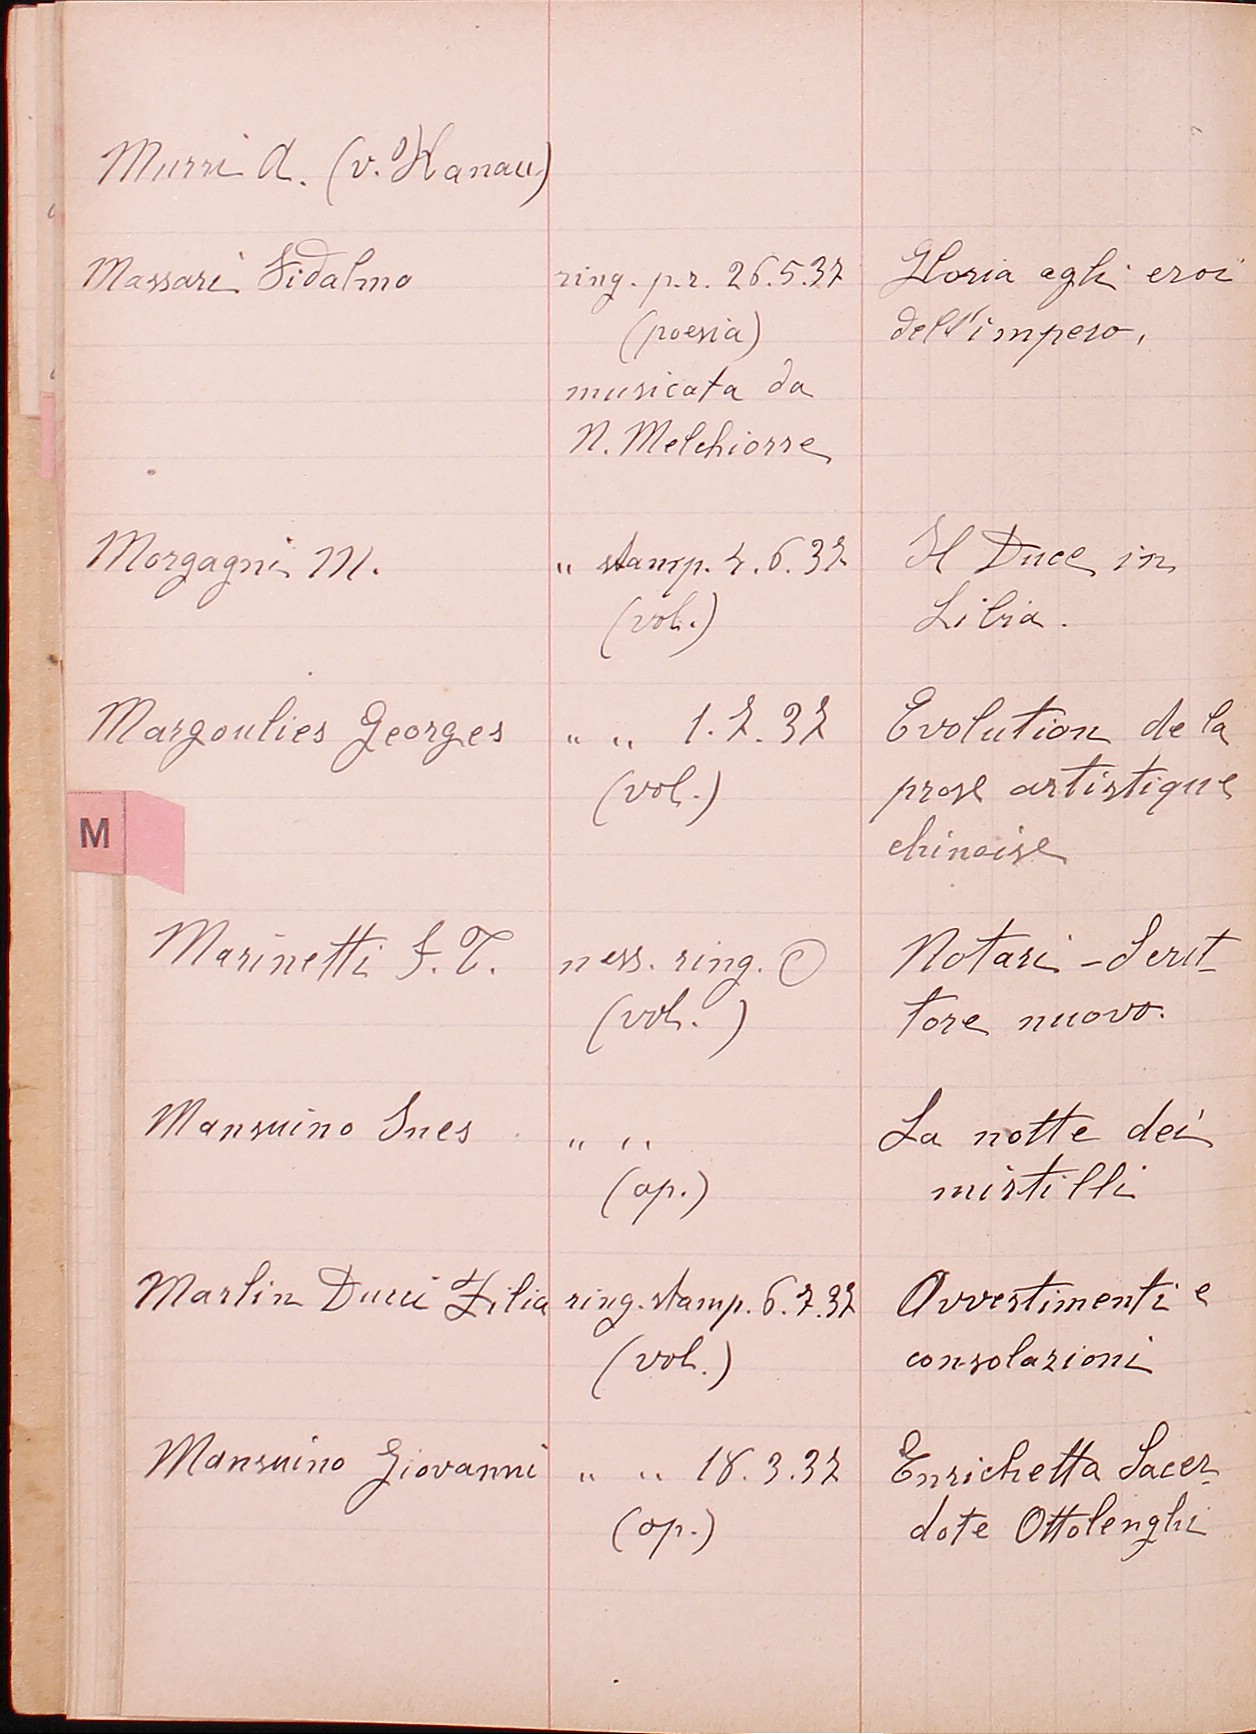 Murri A. (v. Hanau)
Massari Fidalmo ring. p.r. 26.5.37 Gloria agli eroi
(poesia) dell'impero.
musicata da
N. Melchiorre
Morgagni M. " stamp. 4.6.37 Il Duce in
(vol.) Libia.
Margoulies Georges " " 1.7.37 Evolution de la
(vol.) prose artistique
chinoise
M
Marinetti F. T. ness. ring. (vol.) Notari - Scrit-
tore nuovo.
Mansuino Ines " " La notte dei
(op.) mirtilli
Marlin Ducci Zilia ring. stamp. 6.7.37 Avvertimenti e
(vol.) consolazioni
Mansuino Giovanni " " 18.3.37 Enrichetta Sacer-
(op.) dote Ottolenghi